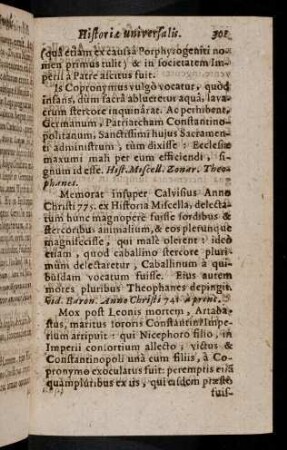 Historiæ universalis. 301
(quâ etiam ex causâ Porphyrogeniti no-
men primus tulit) & in societatem Im-
perii à Patre ascitus fuit.
Is Copronymus vulgò vocatur, quòd
infans, dum sacrâ ablueretur aquâ, lava-
crum stercore inquinârat. Ac perhibent,
Germanum, Patriarcham Constantino-
politanum, Sanctissimi hujus Sacramen-
ti administrum, tùm dixisse: Ecclesiæ
maxumi mali per eum efficiendi, si-
gnum id esse. Hist. Miscell. Zonar. Theo-
phanes.
Memorat insuper Calvisius Anno
Christi 775. ex Historia Miscella, delecta-
tum hunc magnopere fuisse sordibus &
stercoribus animalium, & eos plerunque
magnifecisse, qui malè olerent: ideò
etiam, quod caballino stercore pluri-
mùm delectaretur, Caballinum à qui-
busdam vocatum fuisse. Ejus autem
mores pluribus Theophanes depingit.
vid. Baron. Anno Christi 741. à princ.
Mox post Leonis mortem, Artaba-
stus, maritus sororis Constantini Imperium
arripuit: qui Nicephoro filio, in
Imperii consortium allecto, victus &
Constantinopoli unà cum filiis, à Co-
pronymo exoculatus fuit: peremptis etiã
quàmpluribus ex iis, qui easdem præsto
fuis-